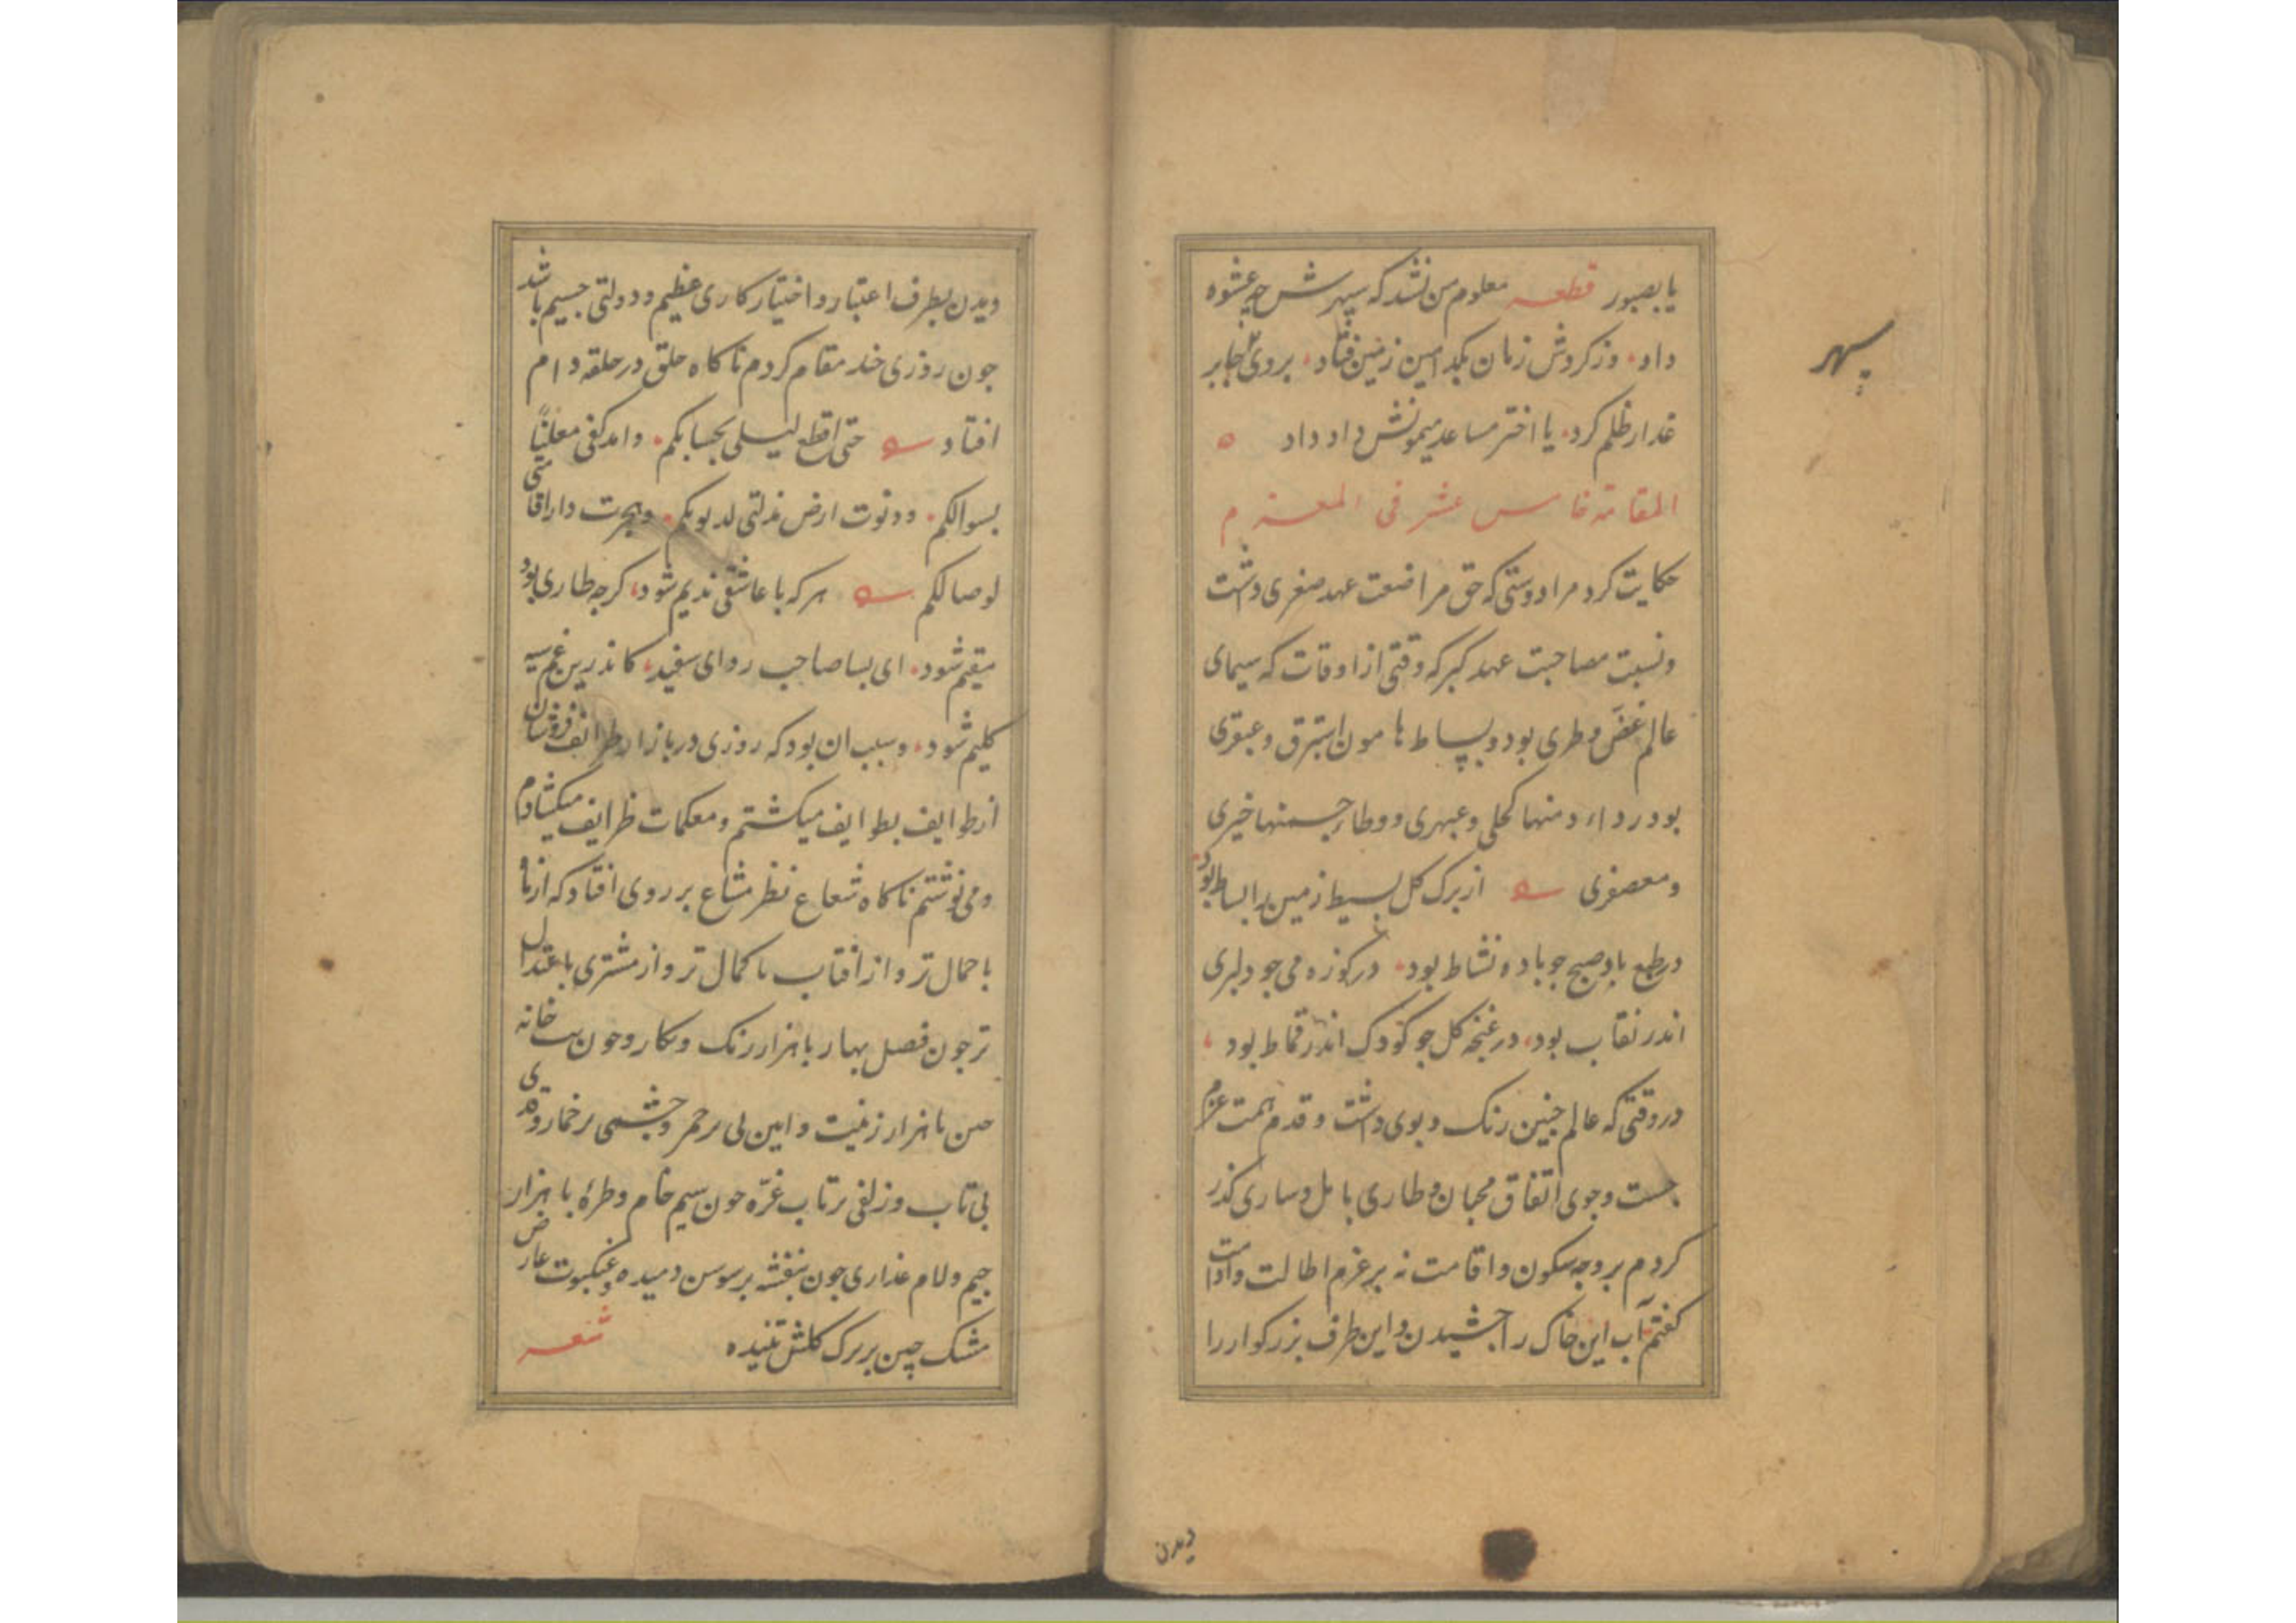 یا بصبور قطعه معلوم من نشد که سپهرش چه عشوه
داد وز کردش زمان بکدامین زمین فتاد بروی جابر
غدار ظلم کرد یا اختر مساعد میمونش داد داد
المقامة خامس عشر فی
حکایت کرد مرا دوستی که حق مراضعت عهد صغری داشت
ونسبت مصاحبت عهد کبر که وقتی از اوقات که سیمای
عالم غض وطری بود وبساط هامون استبرق وعبقری
بود رداء دمنها کحلی وعبهری ووطاء چمنها خیری
ومعصفری از برک کل بسیط زمین بابساط بود
در طبع باد صبح جو باده نشاط بود در کوزه می جو دلبری
اندر نقاب بود در غنچه کل جو کودک اندر قماط بود
در وقتی که عالم جنین رنک وبوی داشت وقدم همت عزم
جست وجوی اتفاق محبان وطاری بامل وساری کذر
کردم بر وجه سکون واقامت نه بر عزم اطالت وادامت
کفتم آب این خاک را جشیدن واین طرف بزرکوار را
سپهر
دیدن
دیدن بطرف اعتبار واختیار کاری عظیم ودولتی جسیم باشد
جون روزی جند مقام کردم ناکاه حلق در حلقه دام
افتاد حتی لیلی بجنابکم معلنا
بسوالکم ودنوت ارض مذلتی وهجرت دار اقامتی
لوصالکم هر که با عاشقی ندیم شود کرجه طاری بود
مقیم شود ای بسا صاحب ردای سفید کاندرین غم سیه
کلیم شود وسبب ان بود که روزی در بازار طرائف فروشان
از طوایف بطوایف میکشتم ومعکمات ظرایف میکشادم
ومی نوشتم ناکاه شعاع نظر مشاع بر روی افتاد که از ماه
باجمال تر واز افتاب باکمال تر واز مشتری باعتدال
تر جون فصل بهار باهزار رنک ونکار وجون بت خانه
چین باهزار زینت وایین لبی برخمر وجشمی برخمار وقدی
بی تاب وزلفی برتاب غره جون سیم خام وطره با هزار
جیم ولام عذاری جون بنفشه بر سوسن دمیده وعنکبوت عارض
مشک چین بر برک کلش تنیده شعر